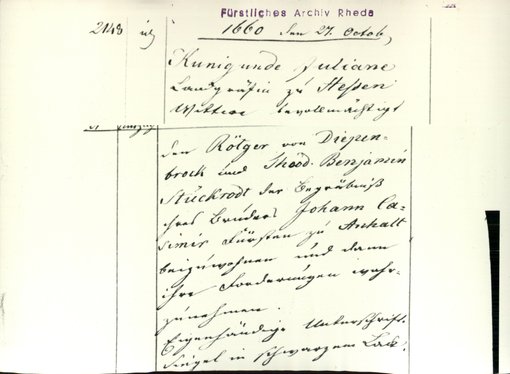 Fürstliches Archiv Rheda
2148
1660 den 27. Octob,
Kunigunde Juliane
Landgräfin zu Hessen
Wittwe bevollmächtigt
den Rötger von Diepen-
brock und Theod. Benjamin
Stückrodt der Begräbniß
ihres Bruders Johann Ca-
simir Fürsten zu Anhalt
beizuwohnen und dann
ihre Forderungen wahr-
zunehmen.
Eigenhändige Unterschrift.
Siegel in schwarzem Lack.